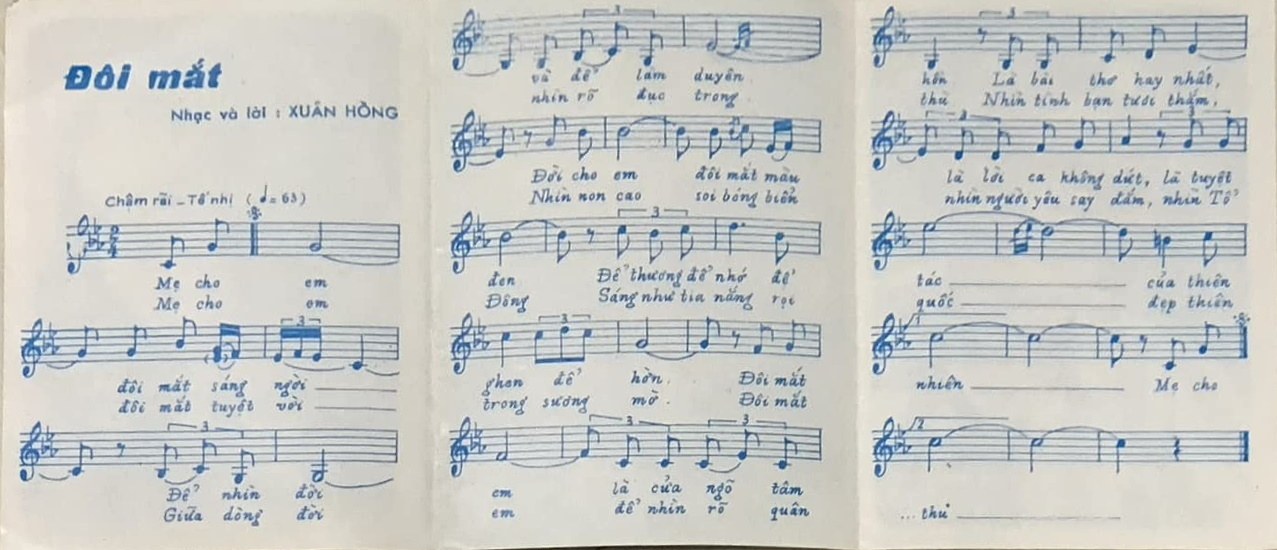 Đôi mắt
Nhạc và lời : XUÂN HỒNG
Chậm rãi _ Tế nhị ( = 63)
Mẹ cho em
Mẹ cho em
3
đôi mắt sáng ngời
đôi mắt tuyệt vời
3
Để nhìn đời
Giữa dòng đời
3
và để làm duyên
nhìn rõ đục trong
Đời cho em đôi mắt màu
Nhìn non cao soi bóng biển
3
đen Để thương để nhớ để
Đông Sáng như tia nắng rọi
3
ghen để hờn. Đôi mắt
trong sương mờ. Đôi mắt
3 3
em là cửa ngõ tâm
em để nhìn rõ quân
3
hồn Là bài thơ hay nhất,
thù Nhìn tình bạn tươi thắm,
3 3
là lời ca không dứt, là tuyệt
nhìn người yêu say đắm, nhìn Tổ
tác của thiên
quốc đẹp thiên
1
nhiên Mẹ cho
2
... thu